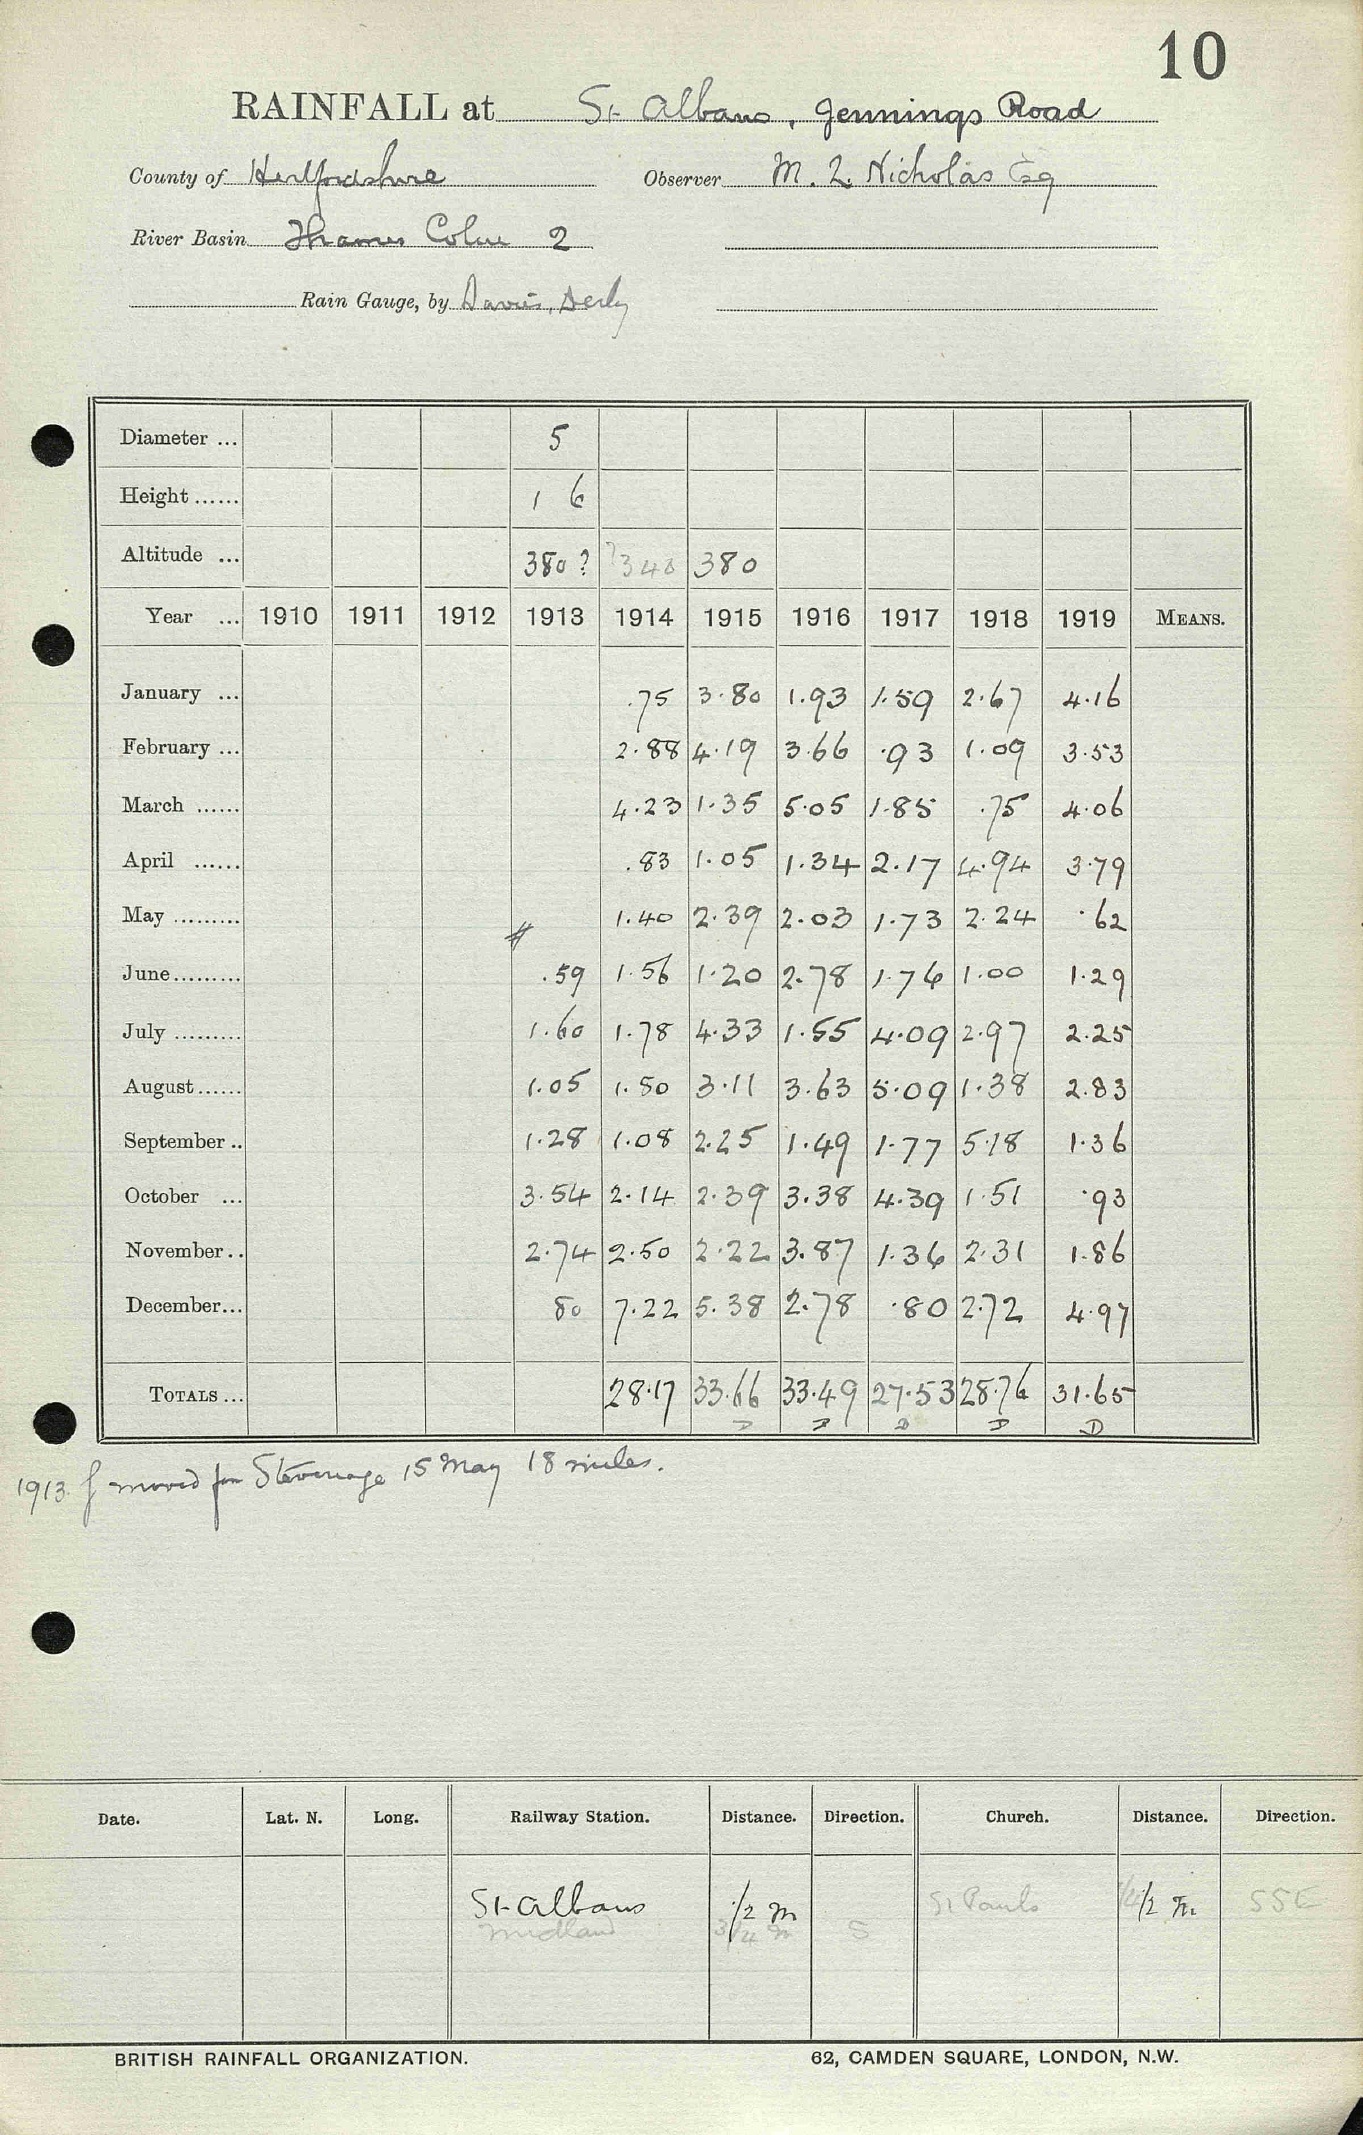 10
RAINFALL at St Albans, Jennings Road
County of Hertfordshire Observer M. L. Nicholas Esq
River Basin Thames Colne 2
Rain Gauge, by Davis, Derby
Diameter ... 5
Height ...... 1 6
Altitude ... 380? ?348 380
Year ... 1910 1911 1912 1913 1914 1915 1916 1917 1918 1919 MEANS.
January ... .75 3.80 1.93 1.59 2.67 4.16
February ... 2.88 4.19 3.66 .93 1.09 3.53
March ...... 4.23 1.35 5.05 1.85 .75 4.06
April ...... .83 1.05 1.34 2.17 4.94 3.79
May ......... 1.40 2.39 2.03 1.73 2.24 .62
June......... .59 1.56 1.20 2.78 1.76 1.00 1.29
July ......... 1.60 1.78 4.33 1.55 4.09 2.97 2.25
August...... 1.05 1.80 3.11 3.63 5.09 1.38 2.83
September .. 1.28 1.08 2.25 1.49 1.77 5.18 1.36
October ... 3.54 2.14 2.39 3.38 4.39 1.51 .93
November .. 2.74 2.50 2.22 3.87 1.36 2.31 1.86
December... 80 7.22 5.38 2.78 .80 2.72 4.97
TOTALS ... 28.17 33.66 33.49 27.53 28.76 31.65
D D D D D
1913 moved from Stevenage 15 May 18 miles.
Date. Lat. N. Long. Railway Station. Distance. Direction. Church. Distance. Direction.
St Albans 1/2 m St Pauls 1/2 m SSE
Midland 3/4 m S
BRITISH RAINFALL ORGANIZATION. 62, CAMDEN SQUARE, LONDON, N.W.